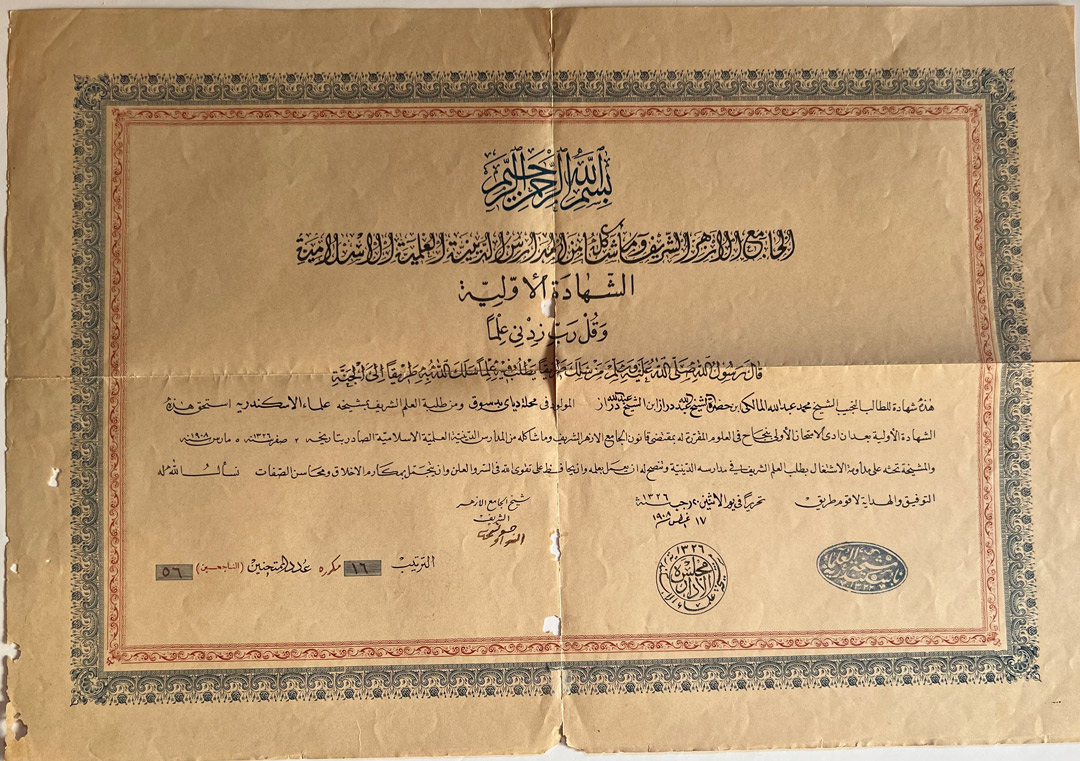 بِسْمِ اللّٰهِ الرَّحْمٰنِ الرَّحِيمِ
الجامع الازهر الشريف وما شاكله من المدارس الدينية العلمية الاسلامية
الشَّهَادَةُ الأَوَّلِيَّة
وَقُلْ رَبِّ زِدْنِي عِلْمًا
قال رسول الله صلى الله عليه وسلم من سلك طريقًا يطلب فيه علمًا سلك الله به طريقًا إلى الجنة
هذه شهادة للطالب النجيب الشيخ محمد عبد الله المالكي بن حضرة الشيخ عبد الله دراز ابن الشيخ دراز المولود في محلة دياي بدسوق ومن طلبة العلم الشريف بمشيخة علماء الاسكندريه استحق هذه
الشهادة الأولية بعد ان ادى الامتحان الأولي بنجاح في العلوم المقررة له بمقتضى قانون الجامع الازهر الشريف وما شاكله من المدارس الدينية العلمية الاسلامية الصادر بتاريخه ٢ صفر سنة ١٣٢٦ ٥ مارس سنة ١٩٠٨
والمشيخة تحثه على مداومة الاشتغال بطلب العلم الشريف في مدارسه الدينية وتنصح له ان يعمل بعلمه وان يحافظ على تقوى الله في السر والعلن وان يتجمل بمكارم الاخلاق ومحاسن الصفات نسأل الله له
التوفيق والهداية لاقوم طريق
تحريرًا في يوم الاثنين ٢٠ رجب سنة ١٣٢٦
١٧ غسطس ١٩٠٨
شيخ الجامع الازهر
الشريف
حسونه
النواوي
الترتيب ١٦ مكرره عدد الممتحنين (الناجحين) ٥٦
١٣٢٦
مجلس
الادارة